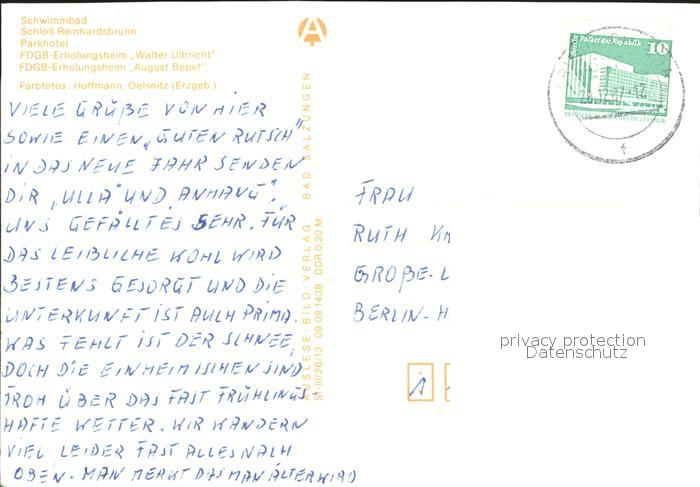 Schwimmbad
Schloß Reinhardsbrunn
Parkhotel
FDGB-Erholungsheim „Walter Ulbricht"
FDGB-Erholungsheim „August Bebel"
Farbfotos: Hoffmann, Oelsnitz (Erzgeb.)
VIELE GRÜßE VON HIER
SOWIE EINEN „GUTEN RUTSCH"
IN DAS NEUE JAHR SENDEN
DIR „ULLA" UND „ANHANG".
UNS GEFÄLLT ES SEHR. FÜR
DAS LEIBLICHE WOHL WIRD
BESTENS GESORGT UND DIE
UNTERKUNFT IST AUCH PRIMA.
WAS FEHLT IST DER SCHNEE,
DOCH DIE EINHEIMISCHEN SIND
FROH ÜBER DAS FAST FRÜHLINGS
HAFTE WETTER. WIR WANDERN
VIEL LEIDER FAST ALLES NACH
OBEN. MAN MERKT DAS MAN ÄLTER WIRD
AUSLESE-BILD-VERLAG BAD SALZUNGEN
S1-III/26/13 09 09 1438 DDR 0,20 M
Palast der Republik
10
FRAU
RUTH
GROßE-
BERLIN-
privacy protection
Datenschutz